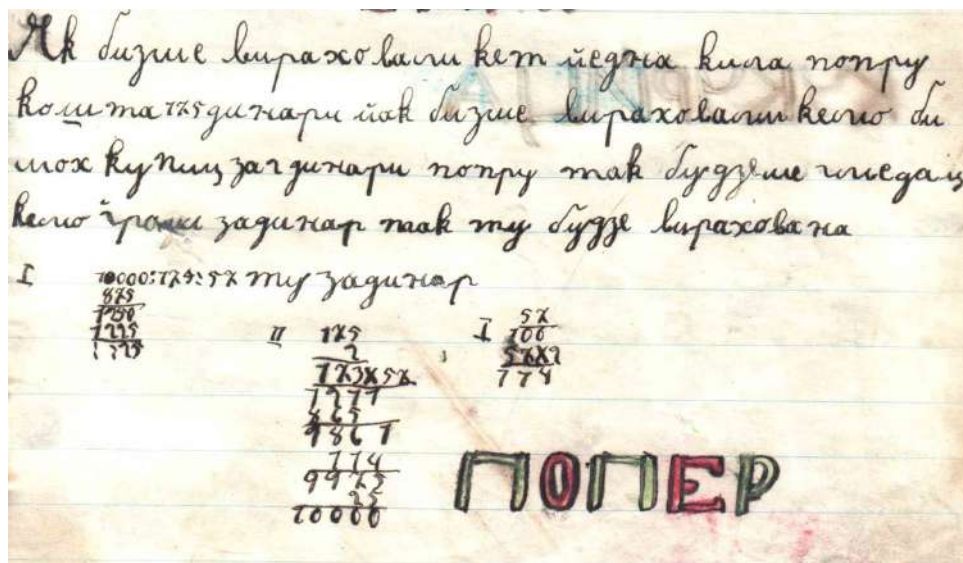 Як бизме вираховали кет йедна кила попру
кошта 175 динари йак бизме вираховали кельо би
мох купиц за 2 динари попру так будземе гледац
кельо грами за динар так ту будзе вирахована
I 10000:175:57 ту за динар
875
1250
1225
II 175
2
173x57
1211
865
9861
114
9975
25
10000
I 57
100
57x2
114
ПОПЕР